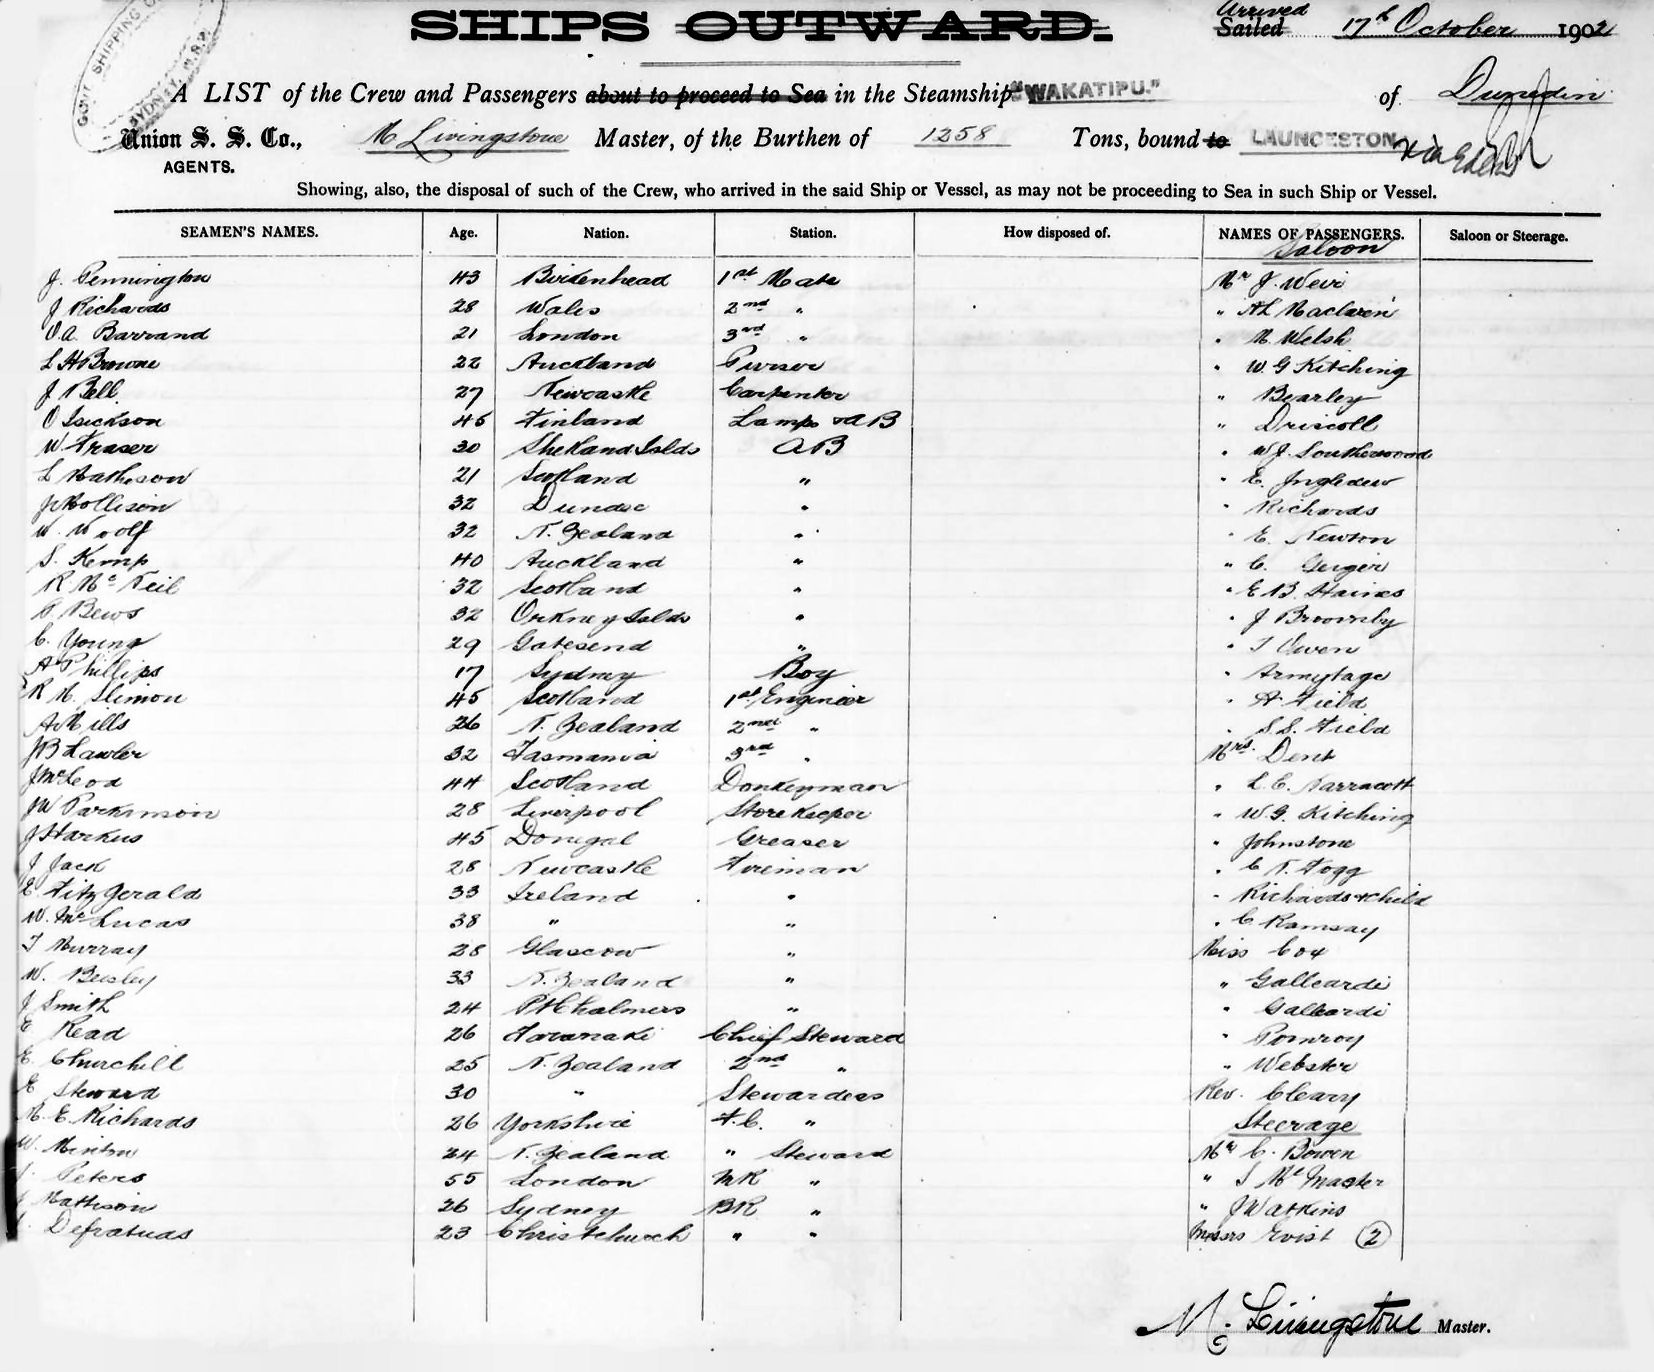 SHIPS OUTWARD.
Arrived
Sailed 17th October 1902
GOVT SHIPPING
SYDNEY, N.S.W.
A LIST of the Crew and Passengers about to proceed to Sea in the Steamship "WAKATIPU." of Dunedin
Union S. S. Co., M Livingstone Master, of the Burthen of 1258 Tons, bound to LAUNCESTON via Eden
AGENTS.
Showing, also, the disposal of such of the Crew, who arrived in the said Ship or Vessel, as may not be proceeding to Sea in such Ship or Vessel.
SEAMEN'S NAMES. Age. Nation. Station. How disposed of. NAMES OF PASSENGERS. Saloon or Steerage.
Saloon
J. Pennington 43 Birkenhead 1st Mate Mr J. Weir
J Richards 28 Wales 2nd " " A L Maclaren
O.A. Barrand 21 London 3rd " " M. Welsh
L H Browne 22 Auckland Purser " W. G Kitching
J Bell. 27 Newcastle Carpenter " Bearley
O Isackson 45 Finland Lamps & AB " Driscoll
W. Fraser 30 Shetland Islds AB " W J. Southerwood
L Matheson 21 Scotland " " E. Ingledew
J Hollison 32 Dundee " " Richards
W. Woolf 32 N. Zealand " " E. Newton
S. Kemp 40 Auckland " " C. Geiger
R. Mc Neil 32 Scotland " " E B. Haines
Bews 32 Orkney Islds " " J Brownby
C. Young 29 Gatesend " " T Owen
A Phillips 17 Sydney Boy " Armytage
R M. Slimon 45 Scotland 1st Engineer " A. Field
A Mills 26 N. Zealand 2nd " " S. S. Field
J B Lawler 32 Tasmania 3rd " Mrs. Dent
J McLeod 44 Scotland Donkeyman " L. C. Parracott
J W Parkinson 28 Liverpool Storekeeper " W. G. Kitching
J Harkus 45 Donegal Greaser " Johnstone
J Jack 28 Newcastle Fireman " C. N. Fogg
E. Fitz Gerald 33 Ireland " " Richards & Child
W. Mc Lucas 38 " " " C Ramsay
T Murray 28 Glascow " Miss Cox
W. Beesley 33 N. Zealand " " Galleardi
J Smith 24 Pt Chalmers " " Galleardi
E Read 26 Taranaki Chief Steward " Pomroy
E. Churchill 25 N. Zealand 2nd " " Webster
E Steward 30 " Stewardess Rev. Cleary
M. E. Richards 26 Yorkshire F.C. " Steerage
W. Minton 24 N. Zealand " Steward Mr C. Bowen
Peters 55 London MR " " S Mc Master
Mattison 26 Sydney BR " " J Watkins
Defratuas 23 Christchurch " " Messrs Evist (2)
M. Livingstone Master.